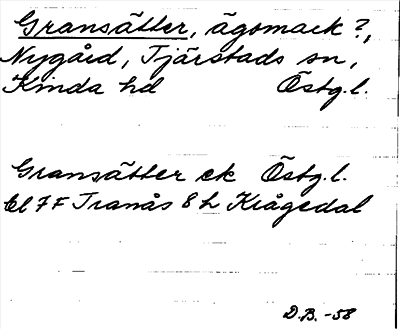 Gransätter, ägomark ?,
Nygård, Tjärstads sn,
Kinda hd Östg.l.
Gransätter ek Östg.l.
bl 7F Tranås 8h Krågedal
D.B. -58